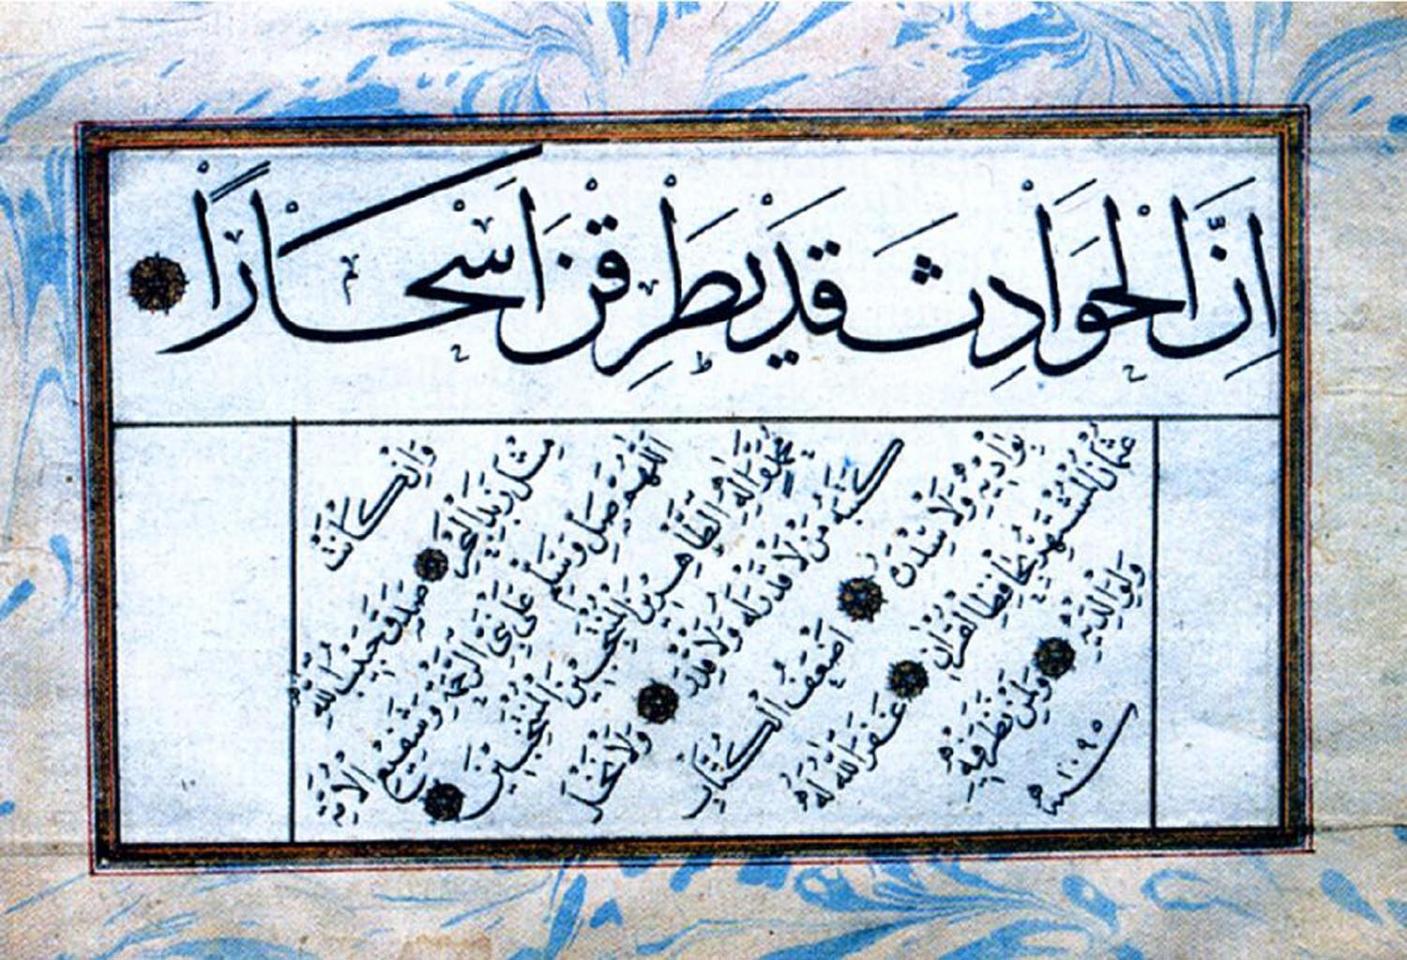 اِنَّ الْحَوَادِثَ قَدْ يَطْرِقْنَ اَسْحَارًا
وَاِنْ كَانَتْ
مِثْلَ زَبَدِ الْبَحْرِ صَدَقَ حَبِيبُ اللّٰهِ
اَللّٰهُمَّ صَلِّ وَسَلِّمْ عَلَى نَبِيِّ الرَّحْمَةِ وَشَفِيعِ الْاُمَّةِ
مُحَمَّدٍ وَاٰلِهِ الطَّاهِرِينَ الْمُنْتَجَبِينَ الْمُنْتَخَبِينَ
كَتَبَهُ مَنْ لَا قَدْرَ لَهُ وَلَا وَلَا نَخْلَ
بِوَادِيهِ وَلَا سِدْرَ اَضْعَفُ الْكُتَّابِ
عُثْمَانُ الْمُشْتَهِرُ بِحَافِظِ الْقُرْاٰنِ غَفَرَ اللّٰهُ لَهُ
وَلِوَالِدَيْهِ وَلِمَنْ نَظَرَ فِيهِ
سنة ١٠٩٥